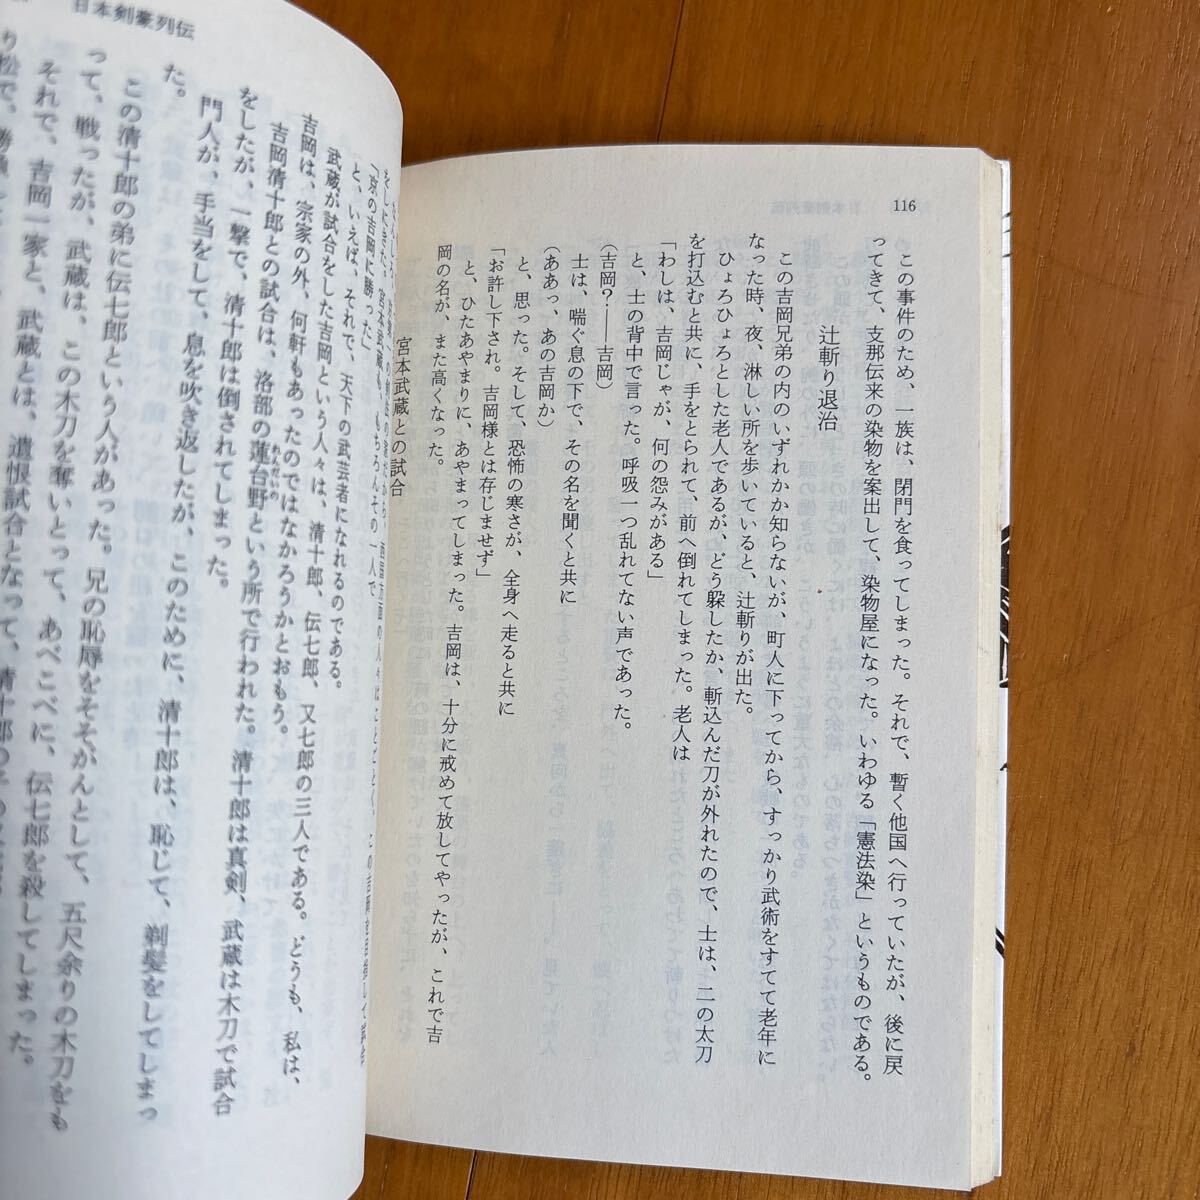 116
この事件のため、一族は、閉門を食ってしまった。それで、暫く他国へ行っていたが、後に戻
ってきて、支那伝来の染物を案出して、染物屋になった。いわゆる「憲法染」というものである。
辻斬り退治
この吉岡兄弟の内のいずれか知らないが、町人に下ってから、すっかり武術をすてて老年に
なった時、夜、淋しい所を歩いていると、辻斬りが出た。
ひょろひょろとした老人であるが、どう躱したか、斬込んだ刀が外れたので、士は、二の太刀
を打込むと共に、手をとられて、前へ倒れてしまった。老人は
「わしは、吉岡じゃが、何の怨みがある」
と、士の背中で言った。呼吸一つ乱れてない声であった。
(吉岡?――吉岡)
士は、喘ぐ息の下で、その名を聞くと共に
(ああっ、あの吉岡か)
と、思った。そして、恐怖の寒さが、全身へ走ると共に
「お許し下され。吉岡様とは存じませず」
と、ひたあやまりに、あやまってしまった。吉岡は、十分に戒めて放してやったが、これで吉
岡の名が、また高くなった。
宮本武蔵との試合
日本剣豪列伝
をしにきた。宮本武蔵も、もちろんその一人で
「京の吉岡に勝った」
と、いえば、それで、天下の武芸者になれるのである。
武蔵が試合をした吉岡という人々は、清十郎、伝七郎、又七郎の三人である。どうも、私は、
吉岡は、宗家の外、何軒もあったのではなかろうかとおもう。
吉岡清十郎との試合は、洛部の蓮台野という所で行われた。清十郎は真剣、武蔵は木刀で試合
をしたが、一撃で、清十郎は倒されてしまった。
門人が、手当をして、息を吹き返したが、このために、清十郎は、恥じて、剃髪をしてしまっ
た。
この清十郎の弟に伝七郎という人があった。兄の恥辱をそそがんとして、五尺余りの木刀をも
って、戦ったが、武蔵は、この木刀を奪いとって、あべこべに、伝七郎を殺してしまった。
それで、吉岡一家と、武蔵とは、遺恨試合となって、清十郎の
り松で、勝負